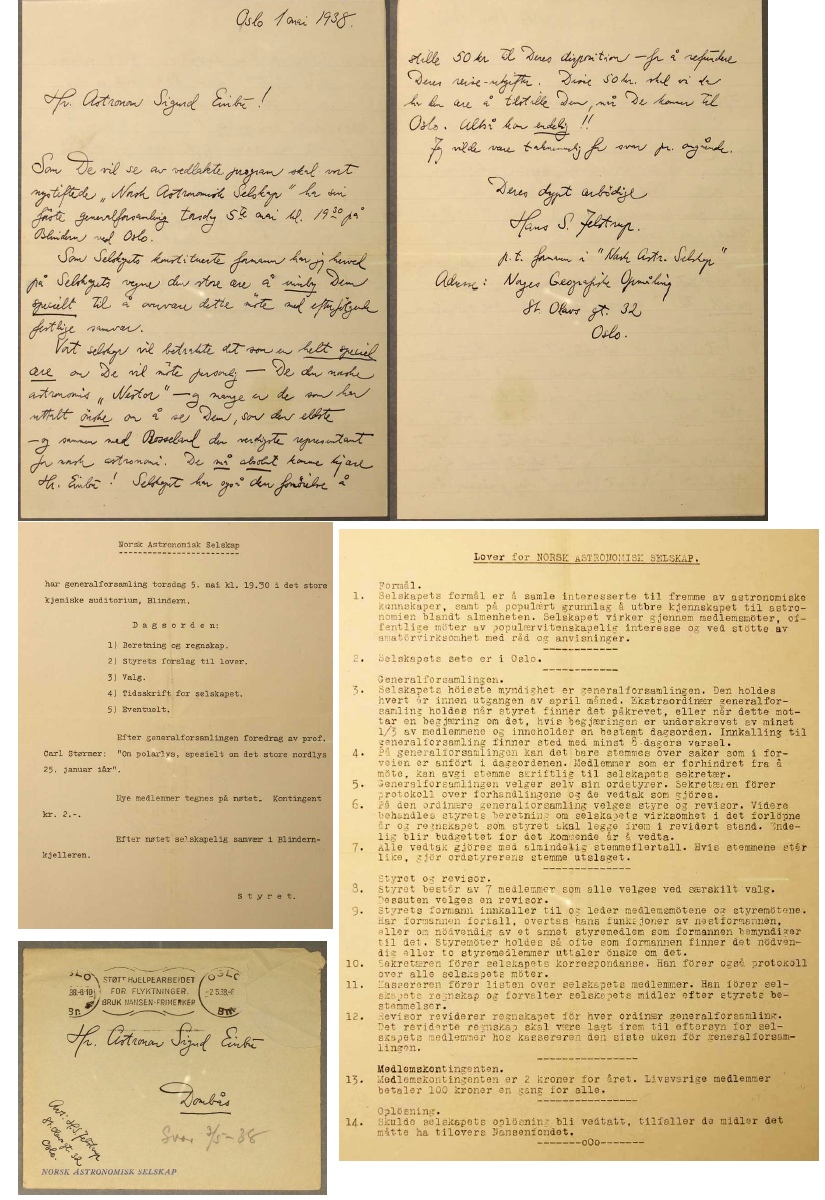 Oslo 1 mai 1938.
Hr. Astronom Sigurd Einbu!
Som De vil se av vedlakte program skal vort
nystiftede „Norsk Astronomisk Selskap" ha sin
første generalforsamling torsdag 5te mai kl. 19³⁰ på
Blindern ved Oslo.
Som Selskapets konstituerte formann har jeg herved
på Selskapets vegne den store ære å innby Dem
specielt til å overvære dette møte med efterfølgende
festlige samvær.
Vort selskap vil betrakte det som en helt speciel
ære om De vil møte personlig — De den norske
astronomis „Nestor" — og mange er de som har
uttalt ønske om å se Dem, som den eldste
— og sammen med Rosseland den verdigste representant
for norsk astronomi. De må absolut komme kjære
Hr. Einbu! Selskapet har også den fornøielse å
stille 50 kr til Deres disposition — for å refundere
Deres reise-utgifter. Disse 50 kr. skal vi da
ha den ære å tilstille Dem, når De kommer til
Oslo. Altså kom endelig!!
Jeg vilde være taknemmlig for svar pr. omgående.
Deres dypt ærbødige
Hans S. Jelstrup.
p.t. formann i "Norsk Astr. Selskap"
Adresse: Norges Geografiske Opmåling
St. Olavs gt. 32
Oslo.
Norsk Astronomisk Selskap
har generalforsamling torsdag 5. mai kl. 19.30 i det store
kjemiske auditorium, Blindern.
Dagsorden:
1) Beretning og regnskap.
2) Styrets forslag til lover.
3) Valg.
4) Tidsskrift for selskapet.
5) Eventuelt.
Efter generalforsamlingen foredrag av prof.
Carl Størmer: "Om polarlys, spesielt om det store nordlys
25. januar iår".
Nye medlemmer tegnes på møtet. Kontingent
kr. 2.-.
Efter møtet selskapelig samvær i Blindern-
kjelleren.
Styret.
Lover for NORSK ASTRONOMISK SELSKAP.
Formål.
1. Selskapets formål er å samle interesserte til fremme av astronomiske
kunnskaper, samt på populært grunnlag å utbre kjennskapet til astro-
nomien blandt almenheten. Selskapet virker gjennem medlemsmöter, of-
fentlige möter av populærvitenskapelig interesse og ved stötte av
amatörvirksomhet med råd og anvisninger.
2. Selskapets sete er i Oslo.
Generalforsamlingen.
3. Selskapets höieste myndighet er generalforsamlingen. Den holdes
hvert år innen utgangen av april måned. Ekstraordinær generalfor-
samling holdes når styret finner det påkrevet, eller når dette mot-
tar en begjæring om det, hvis begjæringen er underskrevet av minst
1/3 av medlemmene og inneholder en bestemt dagsorden. Innkalling til
generalforsamling finner sted med minst 8 dagers varsel.
4. På generalforsamlingen kan det bare stemmes over saker som i for-
veien er anfört i dagsordenen. Medlemmer som er forhindret fra å
möte, kan avgi stemme skriftlig til selskapets sekretær.
5. Generalforsamlingen velger selv sin ordstyrer. Sekretæren förer
protokoll over forhandlingene og de vedtak som gjöres.
6. På den ordinære generalforsamling velges styre og revisor. Videre
behandles styrets beretning om selskapets virksomhet i det forlöpne
år og regnskapet som styret skal legge frem i revidert stand. Ende-
lig blir budgettet for det kommende år å vedta.
7. Alle vedtak gjöres med almindelig stemmeflertall. Hvis stemmene står
like, gjör ordstyrerens stemme utslaget.
Styret og revisor.
8. Styret består av 7 medlemmer som alle velges ved særskilt valg.
Dessuten velges en revisor.
9. Styrets formann innkaller til og leder medlemsmötene og styremötene.
Har formannen forfall, overtas hans funksjoner av nestformannen,
eller om nödvendig av et annet styremedlem som formannen bemyndiger
til det. Styremöter holdes så ofte som formannen finner det nödven-
dig eller to styremedlemmer uttaler önske om det.
10. Sekretæren förer selskapets korrespondanse. Han förer også protokoll
over alle selskapets möter.
11. Kassereren förer listen over selskapets medlemmer. Han förer sel-
skapets regnskap og forvalter selskapets midler efter styrets be-
stemmelser.
12. Revisor reviderer regnskapet för hver ordinær generalforsamling.
Det reviderte regnskap skal være lagt frem til eftersyn for sel-
skapets medlemmer hos kassereren den siste uken för generalforsam-
lingen.
Medlemskontingenten.
13. Medlemskontingenten er 2 kroner for året. Livsvarige medlemmer
betaler 100 kroner en gang for alle.
Oplösning.
14. Skulde selskapets oplösning bli vedtatt, tilfaller de midler det
måtte ha tilovers Nansenfondet.
-------oOo-------
STØTT HJELPEARBEIDET
FOR FLYKTNINGER.
BRUK NANSEN-FRIMERKER
OSLO
-2.5.38.-8
Br.
Hr. Astronom Sigurd Einbu
Dombås
Svar 3/5-38
Avs: H.S. Jelstrup
St. Olavs gt. 32
Oslo.
NORSK ASTRONOMISK SELSKAP